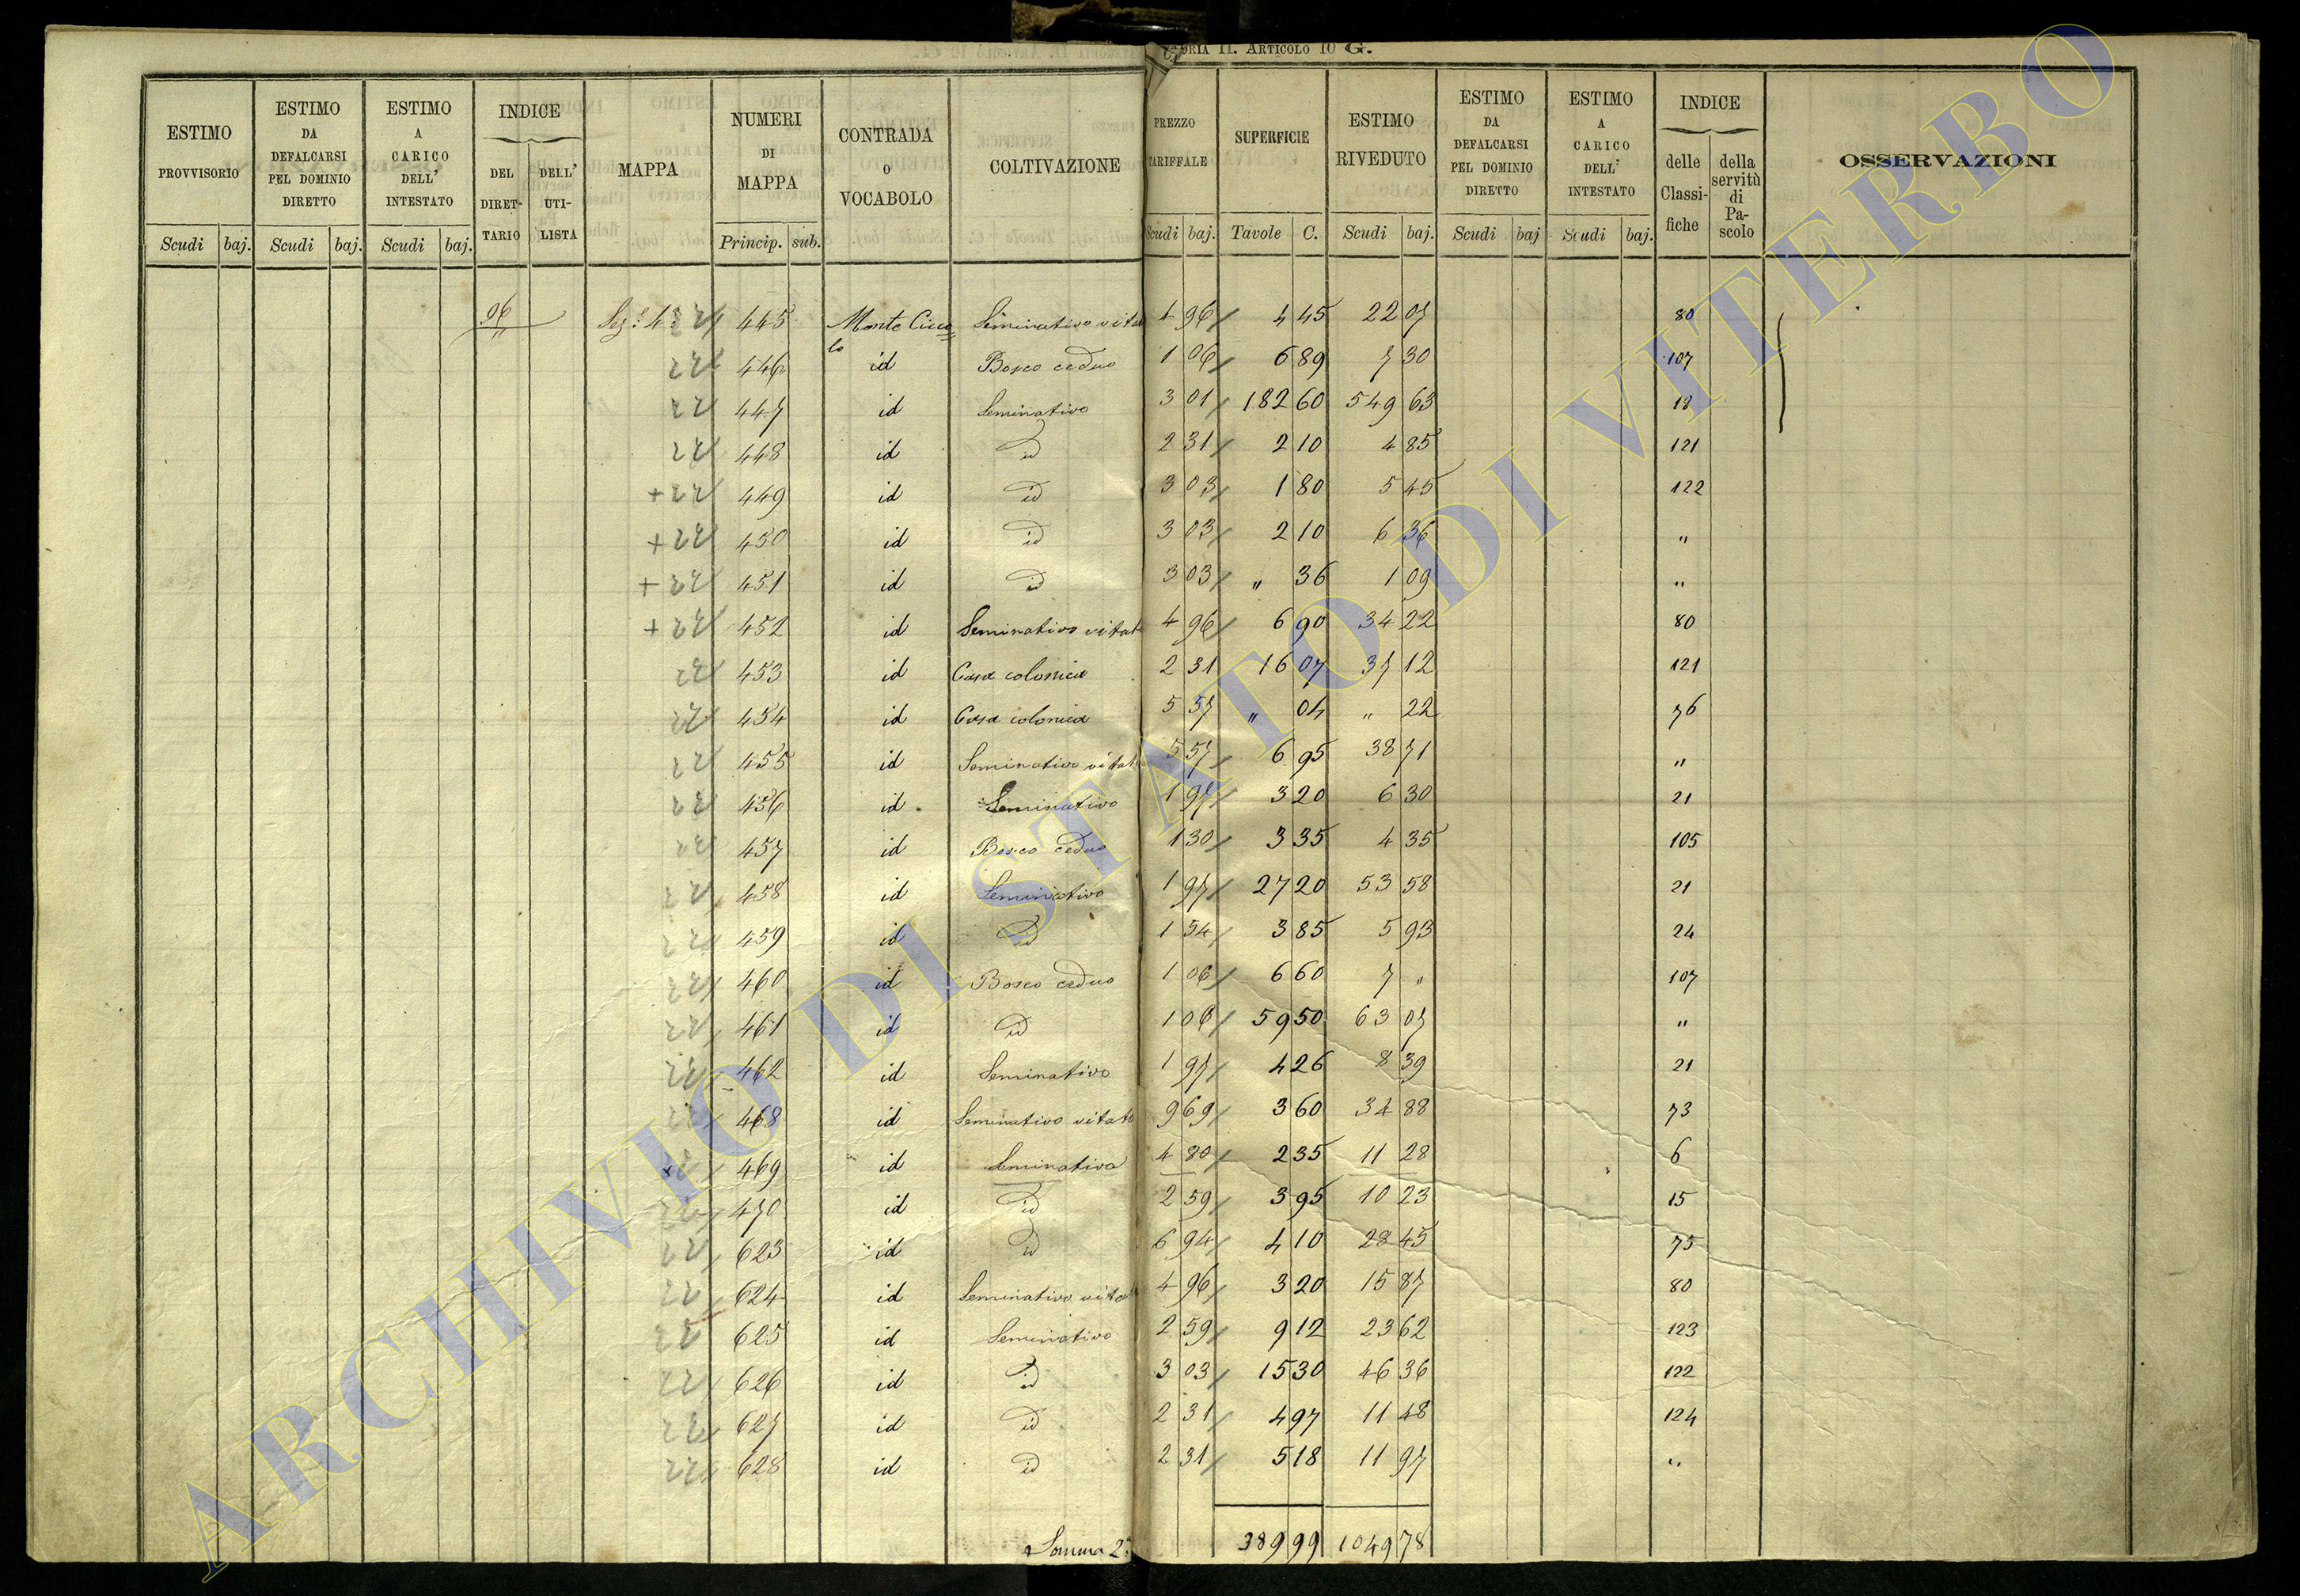 ORIA II. ARTICOLO 10 G.
ESTIMO PROVVISORIO | ESTIMO DA DEFALCARSI PEL DOMINIO DIRETTO | ESTIMO A CARICO DELL' INTESTATO | INDICE | MAPPA | NUMERI DI MAPPA | CONTRADA O VOCABOLO | COLTIVAZIONE | PREZZO TARIFFALE | SUPERFICIE | ESTIMO RIVEDUTO | ESTIMO DA DEFALCARSI PEL DOMINIO DIRETTO | ESTIMO A CARICO DELL' INTESTATO | INDICE | OSSERVAZIONI
DEL DIRET- TARIO | DELL' UTI- LISTA | delle Classi- fiche | della servitù di Pa- scolo
Scudi | baj. | Scudi | baj. | Scudi | baj. | Princip. | sub. | Scudi | baj. | Tavole | C. | Scudi | baj. | Scudi | baj | Scudi | baj.
96 Sez.e 4a 22 445 Monte Cucco Seminativo vitat 4 96 4 45 22 07 80
lo
22 446 id Bosco ceduo 1 06 6 89 7 30 107
22 447 id Seminativo 3 01 182 60 549 63 18
22 448 id id 2 31 2 10 4 85 121
+ 22 449 id id 3 03 1 80 5 45 122
+ 22 450 id id 3 03 2 10 6 36 "
+ 22 451 id id 3 03 " 36 1 09 "
+ 22 452 id Seminativo vitat 4 96 6 90 34 22 80
22 453 id Casa colonica 2 31 16 07 37 12 121
22 454 id Casa colonica 5 57 " 04 " 22 76
22 455 id Seminativo vitat 5 57 6 95 38 71 "
22 456 id Seminativo 1 97 3 20 6 30 21
22 457 id Bosco ceduo 1 30 3 35 4 35 105
22 458 id Seminativo 1 97 27 20 53 58 21
22 459 id id 1 54 3 85 5 93 24
22 460 id Bosco ceduo 1 06 6 60 7 " 107
22 461 id id 1 06 59 50 63 07 "
22 462 id Seminativo 1 97 4 26 8 39 21
22 468 id Seminativo vitato 9 69 3 60 34 88 73
22 469 id Seminativo 4 80 2 35 11 28 6
22 470 id id 2 59 3 95 10 23 15
22 623 id id 6 94 4 10 28 45 75
22 624 id Seminativo vitat 4 96 3 20 15 87 80
22 625 id Seminativo 2 59 9 12 23 62 123
22 626 id id 3 03 15 30 46 36 122
22 627 id id 2 31 4 97 11 48 124
22 628 id id 2 31 5 18 11 97 "
Somma 2a 389 99 1049 78
ARCHIVIO DI STATO DI VITERBO